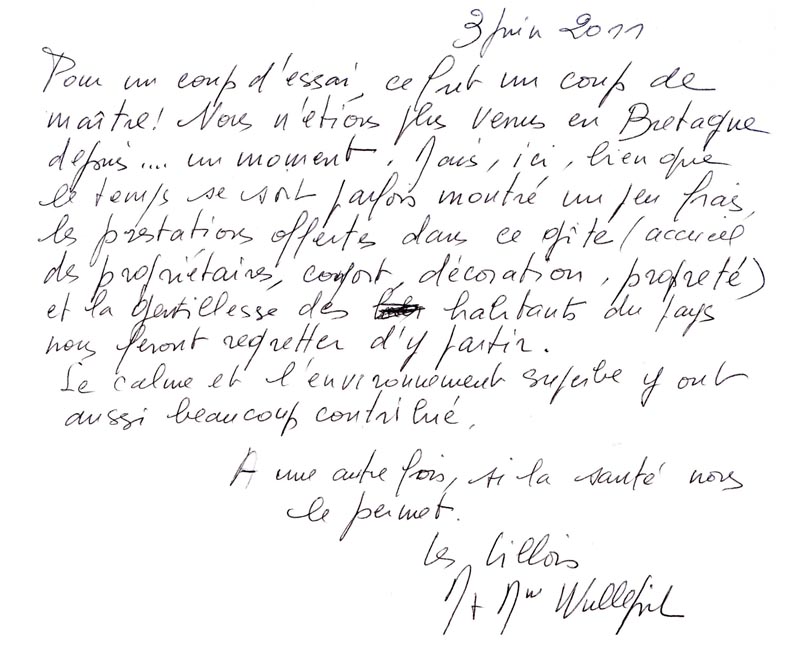 3 juin 2011
Pour un coup d'essai, ce fut un coup de
maître! Nous n'étions plus venus en Bretagne
depuis .... un moment. Mais, ici, bien que
le temps se soit parfois montré un peu frais,
les prestations offertes dans ce gîte (accueil
des propriétaires, confort, décoration, propreté)
et la gentillesse des habitants du pays
nous feront regretter d'y partir.
Le calme et l'environnement superbe y ont
aussi beaucoup contribué.
A une autre fois, si la santé nous
le permet.
Les Lillois
M + Mme